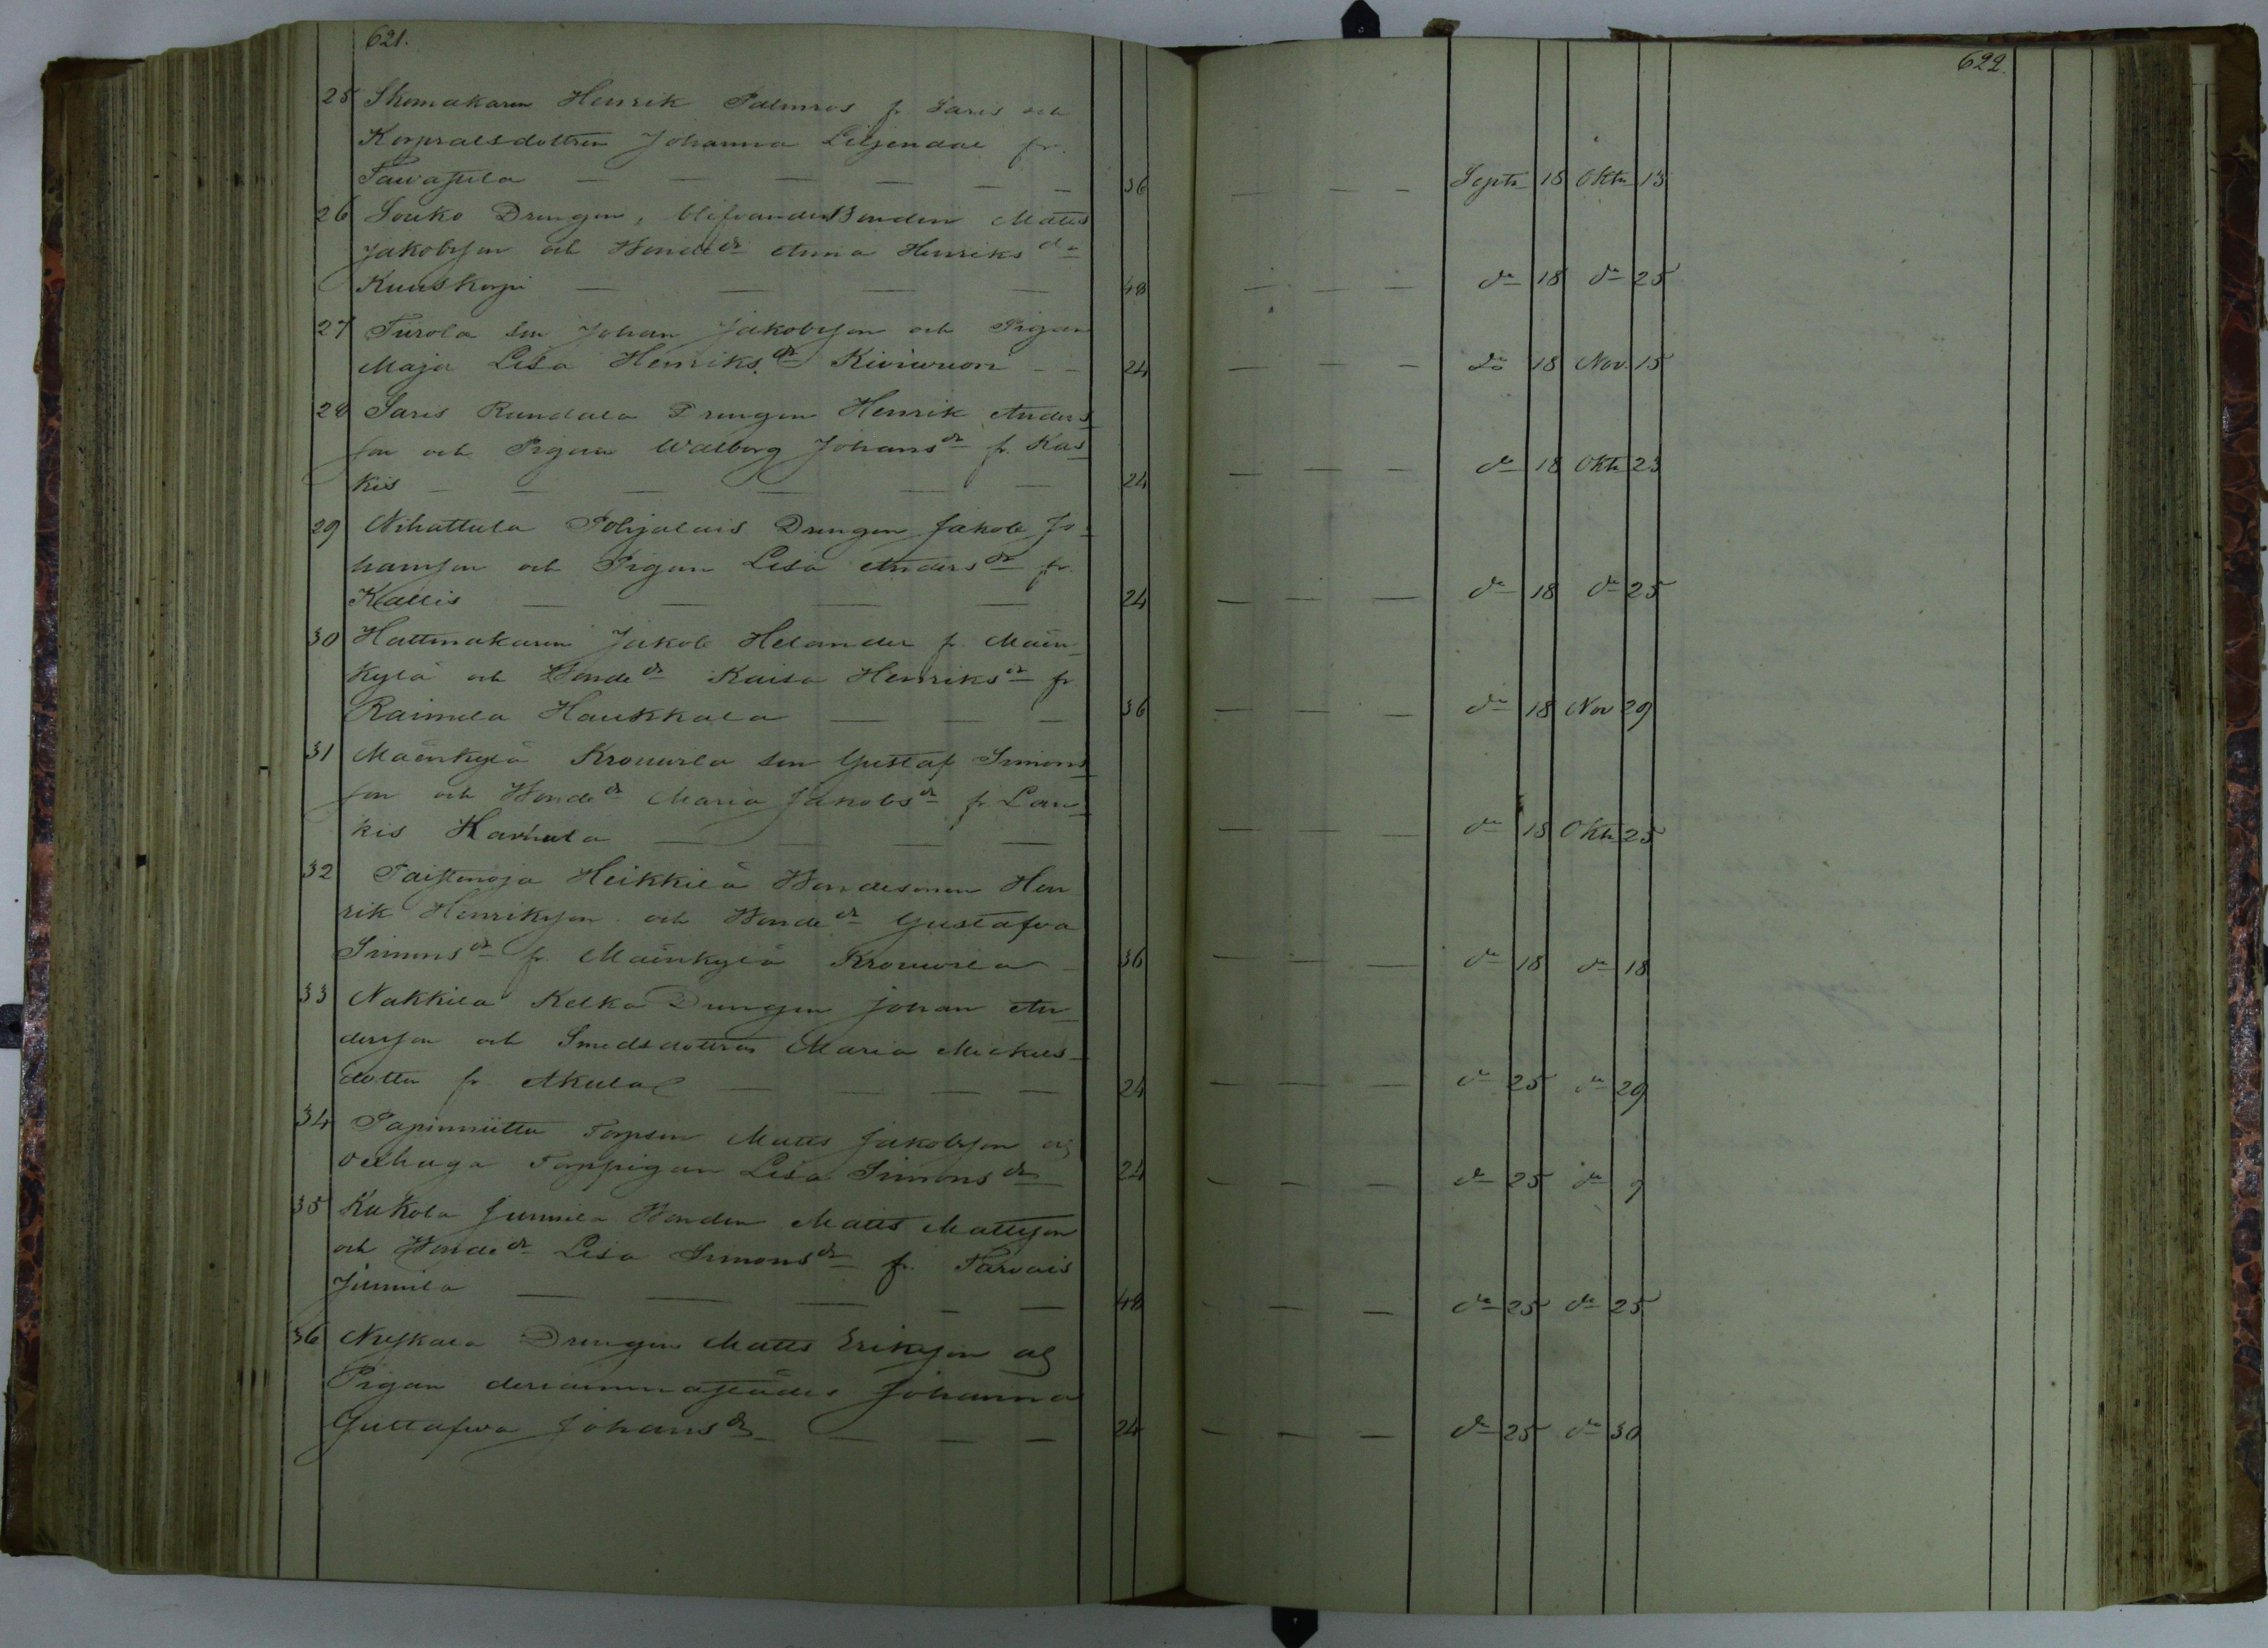 621.
622.
25 Skomakaren Henrik Palmros fr. Saris och
Korpralsdottren Johanna Liljendal fr.
Tawastila — — — — — — 36 — — — Septr 18 Oktr 13
26 Souko Drengen, blifvande Bonden Matts
Jakobsson och Bonde dr Anna Henriks dr
Kuuskorpi — — — — 48 — — — do 18 do 25
27 Tiirola son Johan Jakobsson och Pigan
Maja Lisa Henriks dr Kiviwuori - - 24 — — — do 18 Nov. 15
28 Saris Rundala Drengen Henrik Anders
son och Pigan Walborg Johans dr fr. Kas
kis — — — — — — 24 — — — do 18 Oktr 23
29 Nihattula Pohjalais Drengen Jakob Jo
hansson och Pigan Lisa Anders dr fr.
Kallis — — — — 24 — — — do 18 do 25
30 Hattmakaren Jakob Helander fr. Mäen
kylä och Bonde dr Kaisa Henriks dr fr.
Raimela Haukkala — — — 36 — — — do 18 Nov 29
31 Mäenkylä Krouwila son Gustaf Simons
son och Bonde dr Maria Jakobs dr fr. Lau
kis Karhula — — — — — — — do 18 Oktr 25
32 Paistenoja Heikkilä Bondesonen Hen
rik Henriksson och Bonde dr Gustafva
Simons dr fr. Mäenkylä Krouwila - 36 — — — do 18 do 18
33 Nakkila Kelka Drengen Johan An
dersson och Smedsdottren Maria Mickels
dotter fr. Akula — — — — 24 — — — do 25 do 29
34 Papinniittu Torpson Matts Jakobsson og
Torppigan Lisa Simons dr 24 — — — do 25 do 9
35 Kukola Junnila Bonden Matts Mattsson
och Bonde dr Lisa Simons dr fr. Parwais
Junnila — — — — — 48 — — — do 25 do 25
36 Drengen Matts Eriksson og
Pigan dersammastädes Johanna
Gustafwa Johans dr — — — 24 — — — do 25 do 30